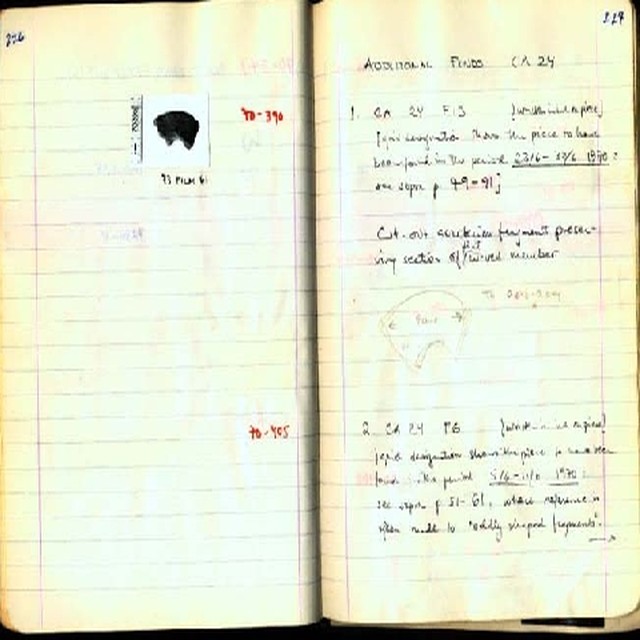 226
70-390
93 FILM 61
70-405
227
ADDITIONAL FINDS CA 24
1. CA 24 F13 [written in ink on piece]
[epis designation shows the piece to have
been found in the period 23/6 - 27/6 1970:
see supra p 49-91]
Cut-out section fragment preser-
ving section of flat curved member
2. CA 24 P6 [written in ink on piece]
designation shows the piece to have been
found in the period 5/6 - 11/6 1970:
see supra p 51-61, where reference is
often made to "oddly shaped fragments".